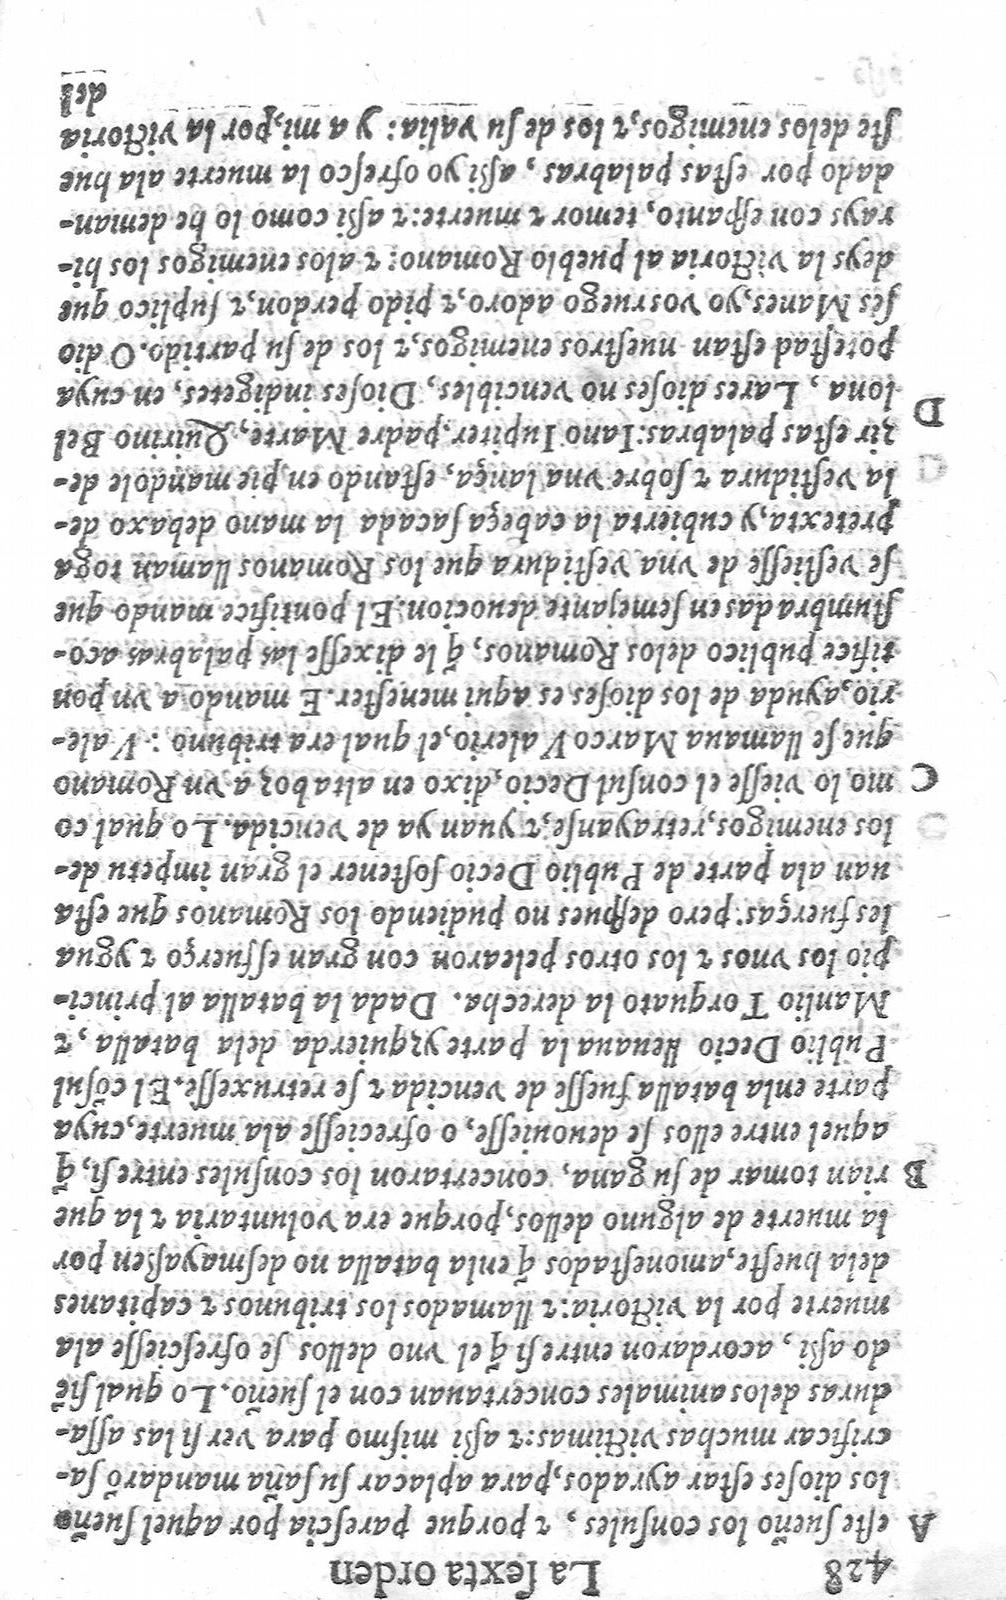 428 La ſexta orden
A eſte ſueño los conſules, ⁊ porque pareſcia por aquel ſueño
los dioſes eſtar ayrados, para aplacar ſu ſaña mandarõ ſa-
crificar muchas victimas: ⁊ aßi miſmo para ver ſi las aſſa-
duras delos animales concertauan con el ſueño. Lo qual ſiẽ
do aßi, acordaron entre ſi q̃ el vno dellos ſe ofreſcieſſe ala
muerte por la victoria: ⁊ llamados los tribunos ⁊ capitanes
dela hueſte, amoneſtados q̃ enla batalla no deſmayaßen por
la muerte de alguno dellos, porque era voluntaria ⁊ la que
B rian tomar de ſu gana, concertaron los conſules entre ſi, q̃
aquel entre ellos ſe deuouieſſe, o ofrecieſſe ala muerte, cuya
parte enla batalla fueſſe de vencida ⁊ ſe retruxeſſe. El cõſul
Publio Decio lleuaua la parte yzquierda dela batalla, ⁊
Manlio Torquato la derecha. Dada la batalla al princi-
pio los vnos ⁊ los otros pelearon con gran eſfuerço ⁊ ygua
les fuerças: pero deſpues no pudiendo los Romanos que eſta
uan ala parte de Publio Decio ſoſtener el gran impetu de-
los enemigos, retrayanſe, ⁊ yuan ya de vencida. Lo qual co
C mo lo vieſſe el conſul Decio, dixo en alta boz a vn Romano
que ſe llamaua Marco Valerio, el qual era tribuno: Vale-
rio, ayuda de los dioſes es aqui meneſter. E mando a vn pon
tifice publico delos Romanos, q̃ le dixeſſe las palabras aco-
ſtumbradas en ſemejante deuocion: El pontifice mando que
ſe veſtieſſe de vna veſtidura que los Romanos llaman toga
pretexta, y cubierta la cabeça ſacada la mano debaxo de-
la veſtidura ⁊ ſobre vna lança, eſtando en pie mandole de-
zir eſtas palabras: Iano Iupiter, padre Marte, Quirino Bel
D lona, Lares dioſes no vencibles, Dioſes indigetes, en cuya
poteſtad eſtan nueſtros enemigos, ⁊ los de ſu partido. O dio
ſes Manes, yo vos ruego adoro, ⁊ pido perdon, ⁊ ſuplico que
deys la victoria al pueblo Romano: ⁊ alos enemigos los hi-
rays con eſpanto, temor ⁊ muerte: ⁊ aßi como lo he deman-
dado por eſtas palabras, aßi yo ofreſco la muerte ala hue
ſte delos enemigos, ⁊ los de ſu valia: y a mi, por la victoria
del